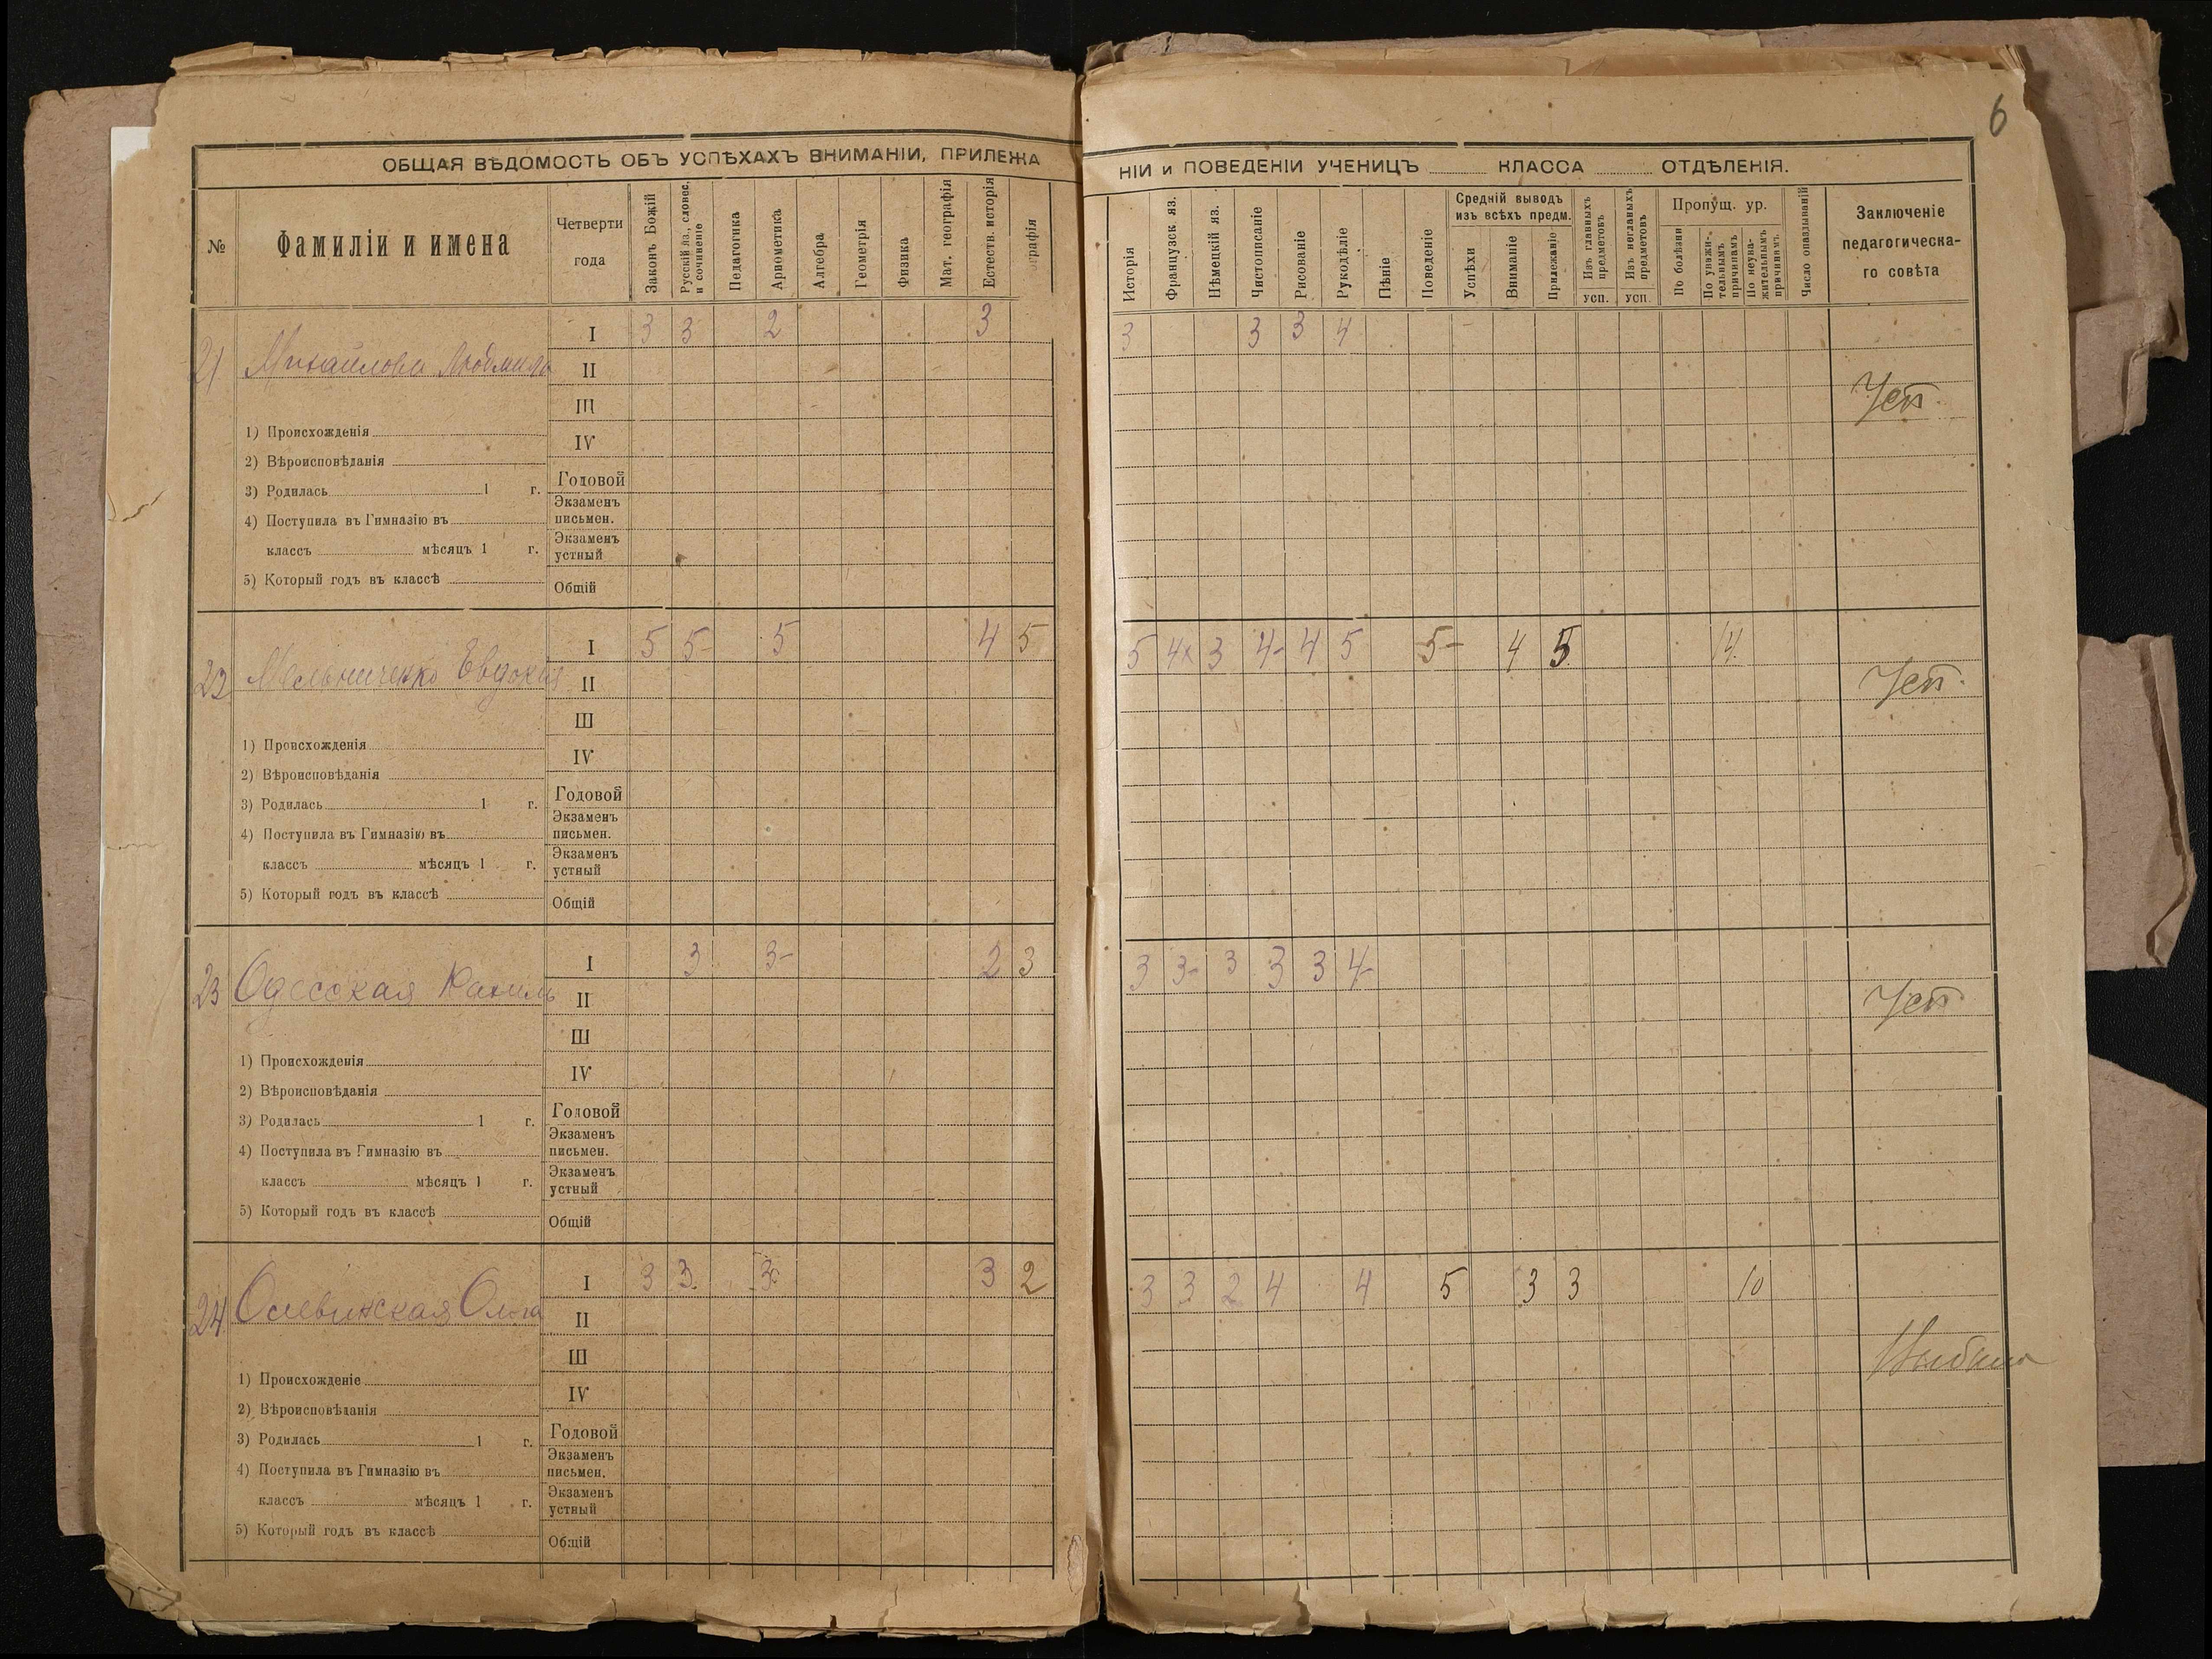 6
ОБЩАЯ ВѢДОМОСТЬ ОБЪ УСПѢХАХЪ ВНИМАНІИ, ПРИЛЕЖА
НІИ и ПОВЕДЕНІИ УЧЕНИЦЪ КЛАССА ОТДѢЛЕНІЯ.
№ Фамиліи и имена Четверти года Законъ Божій Русскій яз., словес. и сочиненіе Педагогика Арифметика Алгебра Геометрія Физика Мат. географія Естеств. исторія графія
Исторія Французск яз. Нѣмецкій яз. Чистописаніе Рисованіе Рукодѣліе Пѣніе Поведеніе Средній выводъ изъ всѣхъ предм. Успѣхи Вниманіе Прилежаніе Изъ главныхъ предметовъ усп. Изъ неглавныхъ предметовъ усп. Пропущ. ур. По болѣзни По уважи-тельнымъ причинамъ По неува-жительнымъ причинамъ Число опаздываній Заключеніе педагогическа-го совѣта
21 Михайлова Людмила
I 3 3 2 3 3 3 3 4
II
III
Усп.
1) Происхожденія
IV
2) Вѣроисповѣданія
Годовой
3) Родилась 1 г.
Экзаменъ письмен.
4) Поступила въ Гимназію въ
классъ мѣсяцъ 1 г.
Экзаменъ устный
5) Который годъ въ классѣ
Общій
22 Мельниченко Евдокия
I 5 5- 5 4 5 5 4х 3 4- 4 5 5- 4 5 14
II
Усп.
III
1) Происхожденія
IV
2) Вѣроисповѣданія
Годовой
3) Родилась 1 г.
Экзаменъ письмен.
4) Поступила въ Гимназію въ
классъ мѣсяцъ 1 г.
Экзаменъ устный
5) Который годъ въ классѣ
Общій
23 Одесская Рахиль
I 3 3- 2 3 3 3- 3 3 3 4-
II
Усп
III
1) Происхожденія
IV
2) Вѣроисповѣданія
Годовой
3) Родилась 1 г.
Экзаменъ письмен.
4) Поступила въ Гимназію въ
классъ мѣсяцъ 1 г.
Экзаменъ устный
5) Который годъ въ классѣ
Общій
24 Ольга
I 3 3 3 3 2 3 3 2 4 4 5 3 3 10
II
III
Выбыла
1) Происхожденіе
IV
2) Вѣроисповѣданія
Годовой
3) Родилась 1 г.
Экзаменъ письмен.
4) Поступила въ Гимназію въ
классъ мѣсяцъ 1 г.
Экзаменъ устный
5) Который годъ въ классѣ
Общій